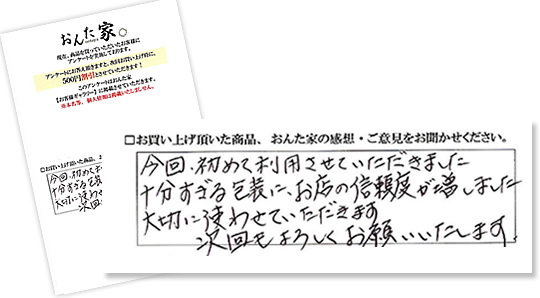 おんた家。
現在、商品を買っていただいたお客様に
アンケートを実施しております。
アンケートにお答え頂きますと、次回お買い上げ時に、
500円割引とさせていただきます!
このアンケートはおんた家
【お客様ギャラリー】に掲載させていただきます。
※本名等、個人情報は掲載いたしません。
□お買い上げ頂いた商品、
今回、初めて利
十分すぎる包装
大切に使わせ
次回
□お買い上げ頂いた商品、おんた家の感想・ご意見をお聞かせください。
今回、初めて利用させていただきました
十分すぎる包装に、お店の信頼度が増しました
大切に使わせていただきます
次回もよろしくお願いいたします